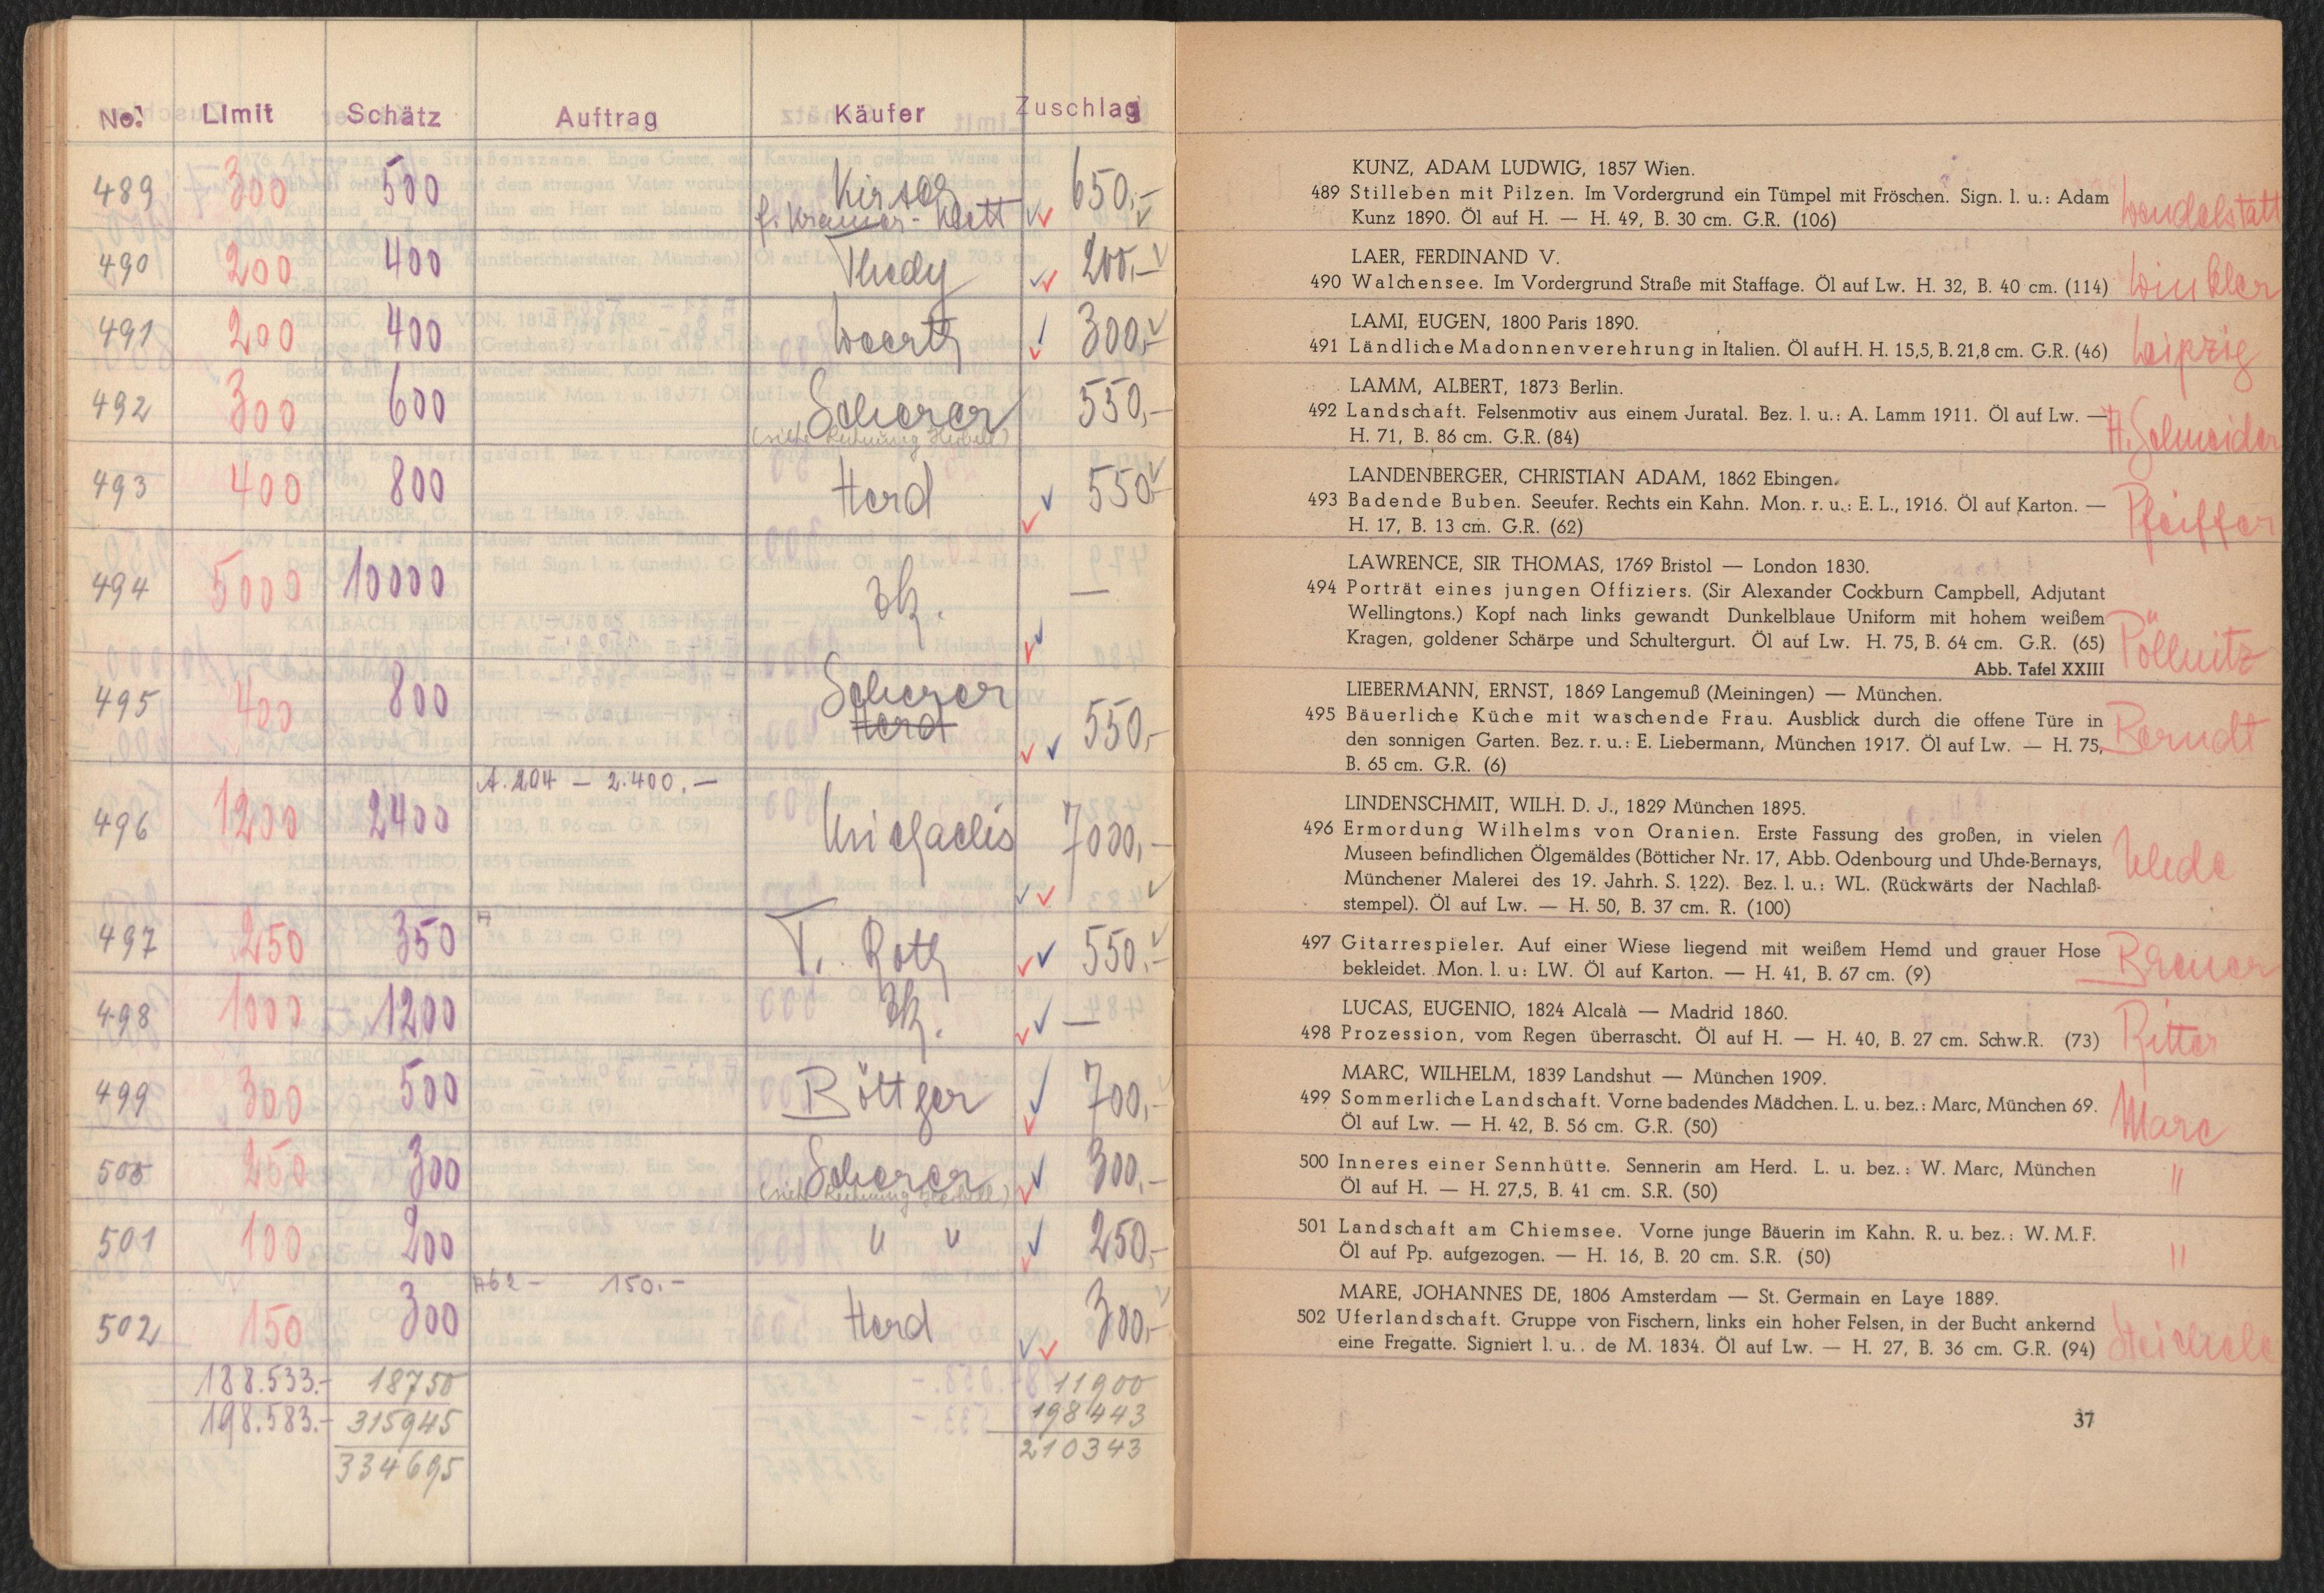 No. Limit Schätz Auftrag Käufer Zuschlag
489 300 500 Kirsch 650,-
f. Kramer-Klett
490 200 400 Thedy 200,-
491 200 400 Woertz 300,-
492 300 600 Scherer 550,-
(siehe Rechnung)
493 400 800 Herd 550,-
494 5000 10000 Zk. —
495 400 800 Scherer
Herd 550,-
A. 204 — 2.400,—
496 1200 2400 Michaelis 7000,-
497 250 350 A T. Roth 550,-
498 1000 1200 Zk. —
499 300 500 Böttger 700,-
500 250 300 Scherer 300,-
(siehe Rechnung)
501 100 200 " " 250,-
A62 - 150.-
502 150 300 Herd 300,-
188.533.- 18750 11900
198.583.- 315945 198443
334695 210343
KUNZ, ADAM LUDWIG, 1857 Wien.
489 Stilleben mit Pilzen. Im Vordergrund ein Tümpel mit Fröschen. Sign. l. u.: Adam
Kunz 1890. Öl auf H. — H. 49, B. 30 cm. G.R. (106)
Wendelstatt
LAER, FERDINAND V.
490 Walchensee. Im Vordergrund Straße mit Staffage. Öl auf Lw. H. 32, B. 40 cm. (114) Winkler
LAMI, EUGEN, 1800 Paris 1890.
491 Ländliche Madonnenverehrung in Italien. Öl auf H. H. 15,5, B. 21,8 cm. G.R. (46) Leipzig
LAMM, ALBERT, 1873 Berlin.
492 Landschaft. Felsenmotiv aus einem Juratal. Bez. l. u.: A. Lamm 1911. Öl auf Lw. —
H. 71, B. 86 cm. G.R. (84)
H. Schneider
LANDENBERGER, CHRISTIAN ADAM, 1862 Ebingen.
493 Badende Buben. Seeufer. Rechts ein Kahn. Mon. r. u.: E. L., 1916. Öl auf Karton. —
H. 17, B. 13 cm. G.R. (62)
Pfeiffer
LAWRENCE, SIR THOMAS, 1769 Bristol — London 1830.
494 Porträt eines jungen Offiziers. (Sir Alexander Cockburn Campbell, Adjutant
Wellingtons.) Kopf nach links gewandt Dunkelblaue Uniform mit hohem weißem
Kragen, goldener Schärpe und Schultergurt. Öl auf Lw. H. 75, B. 64 cm. G.R. (65)
Pöllnitz
Abb. Tafel XXIII
LIEBERMANN, ERNST, 1869 Langemuß (Meiningen) — München.
495 Bäuerliche Küche mit waschende Frau. Ausblick durch die offene Türe in
den sonnigen Garten. Bez. r. u.: E. Liebermann, München 1917. Öl auf Lw. — H. 75,
B. 65 cm. G.R. (6)
Berndt
LINDENSCHMIT, WILH. D. J., 1829 München 1895.
496 Ermordung Wilhelms von Oranien. Erste Fassung des großen, in vielen
Museen befindlichen Ölgemäldes (Bötticher Nr. 17, Abb. Odenbourg und Uhde-Bernays,
Münchener Malerei des 19. Jahrh. S. 122). Bez. l. u.: WL. (Rückwärts der Nachlaß-
stempel). Öl auf Lw. — H. 50, B. 37 cm. R. (100)
497 Gitarrespieler. Auf einer Wiese liegend mit weißem Hemd und grauer Hose
bekleidet. Mon. l. u: LW. Öl auf Karton. — H. 41, B. 67 cm. (9)
LUCAS, EUGENIO, 1824 Alcalà — Madrid 1860.
498 Prozession, vom Regen überrascht. Öl auf H. — H. 40, B. 27 cm. Schw.R. (73) Ritter
MARC, WILHELM, 1839 Landshut — München 1909.
499 Sommerliche Landschaft. Vorne badendes Mädchen. L. u. bez.: Marc, München 69.
Öl auf Lw. — H. 42, B. 56 cm. G.R. (50)
Marc
500 Inneres einer Sennhütte. Sennerin am Herd. L. u. bez.: W. Marc, München "
Öl auf H. — H. 27,5, B. 41 cm. S.R. (50)
501 Landschaft am Chiemsee. Vorne junge Bäuerin im Kahn. R. u. bez.: W. M. F.
Öl auf Pp. aufgezogen. — H. 16, B. 20 cm. S.R. (50) "
MARE, JOHANNES DE, 1806 Amsterdam — St. Germain en Laye 1889.
502 Uferlandschaft. Gruppe von Fischern, links ein hoher Felsen, in der Bucht ankernd
eine Fregatte. Signiert l. u.. de M. 1834. Öl auf Lw. — H. 27, B. 36 cm. G.R. (94) Steichele
37